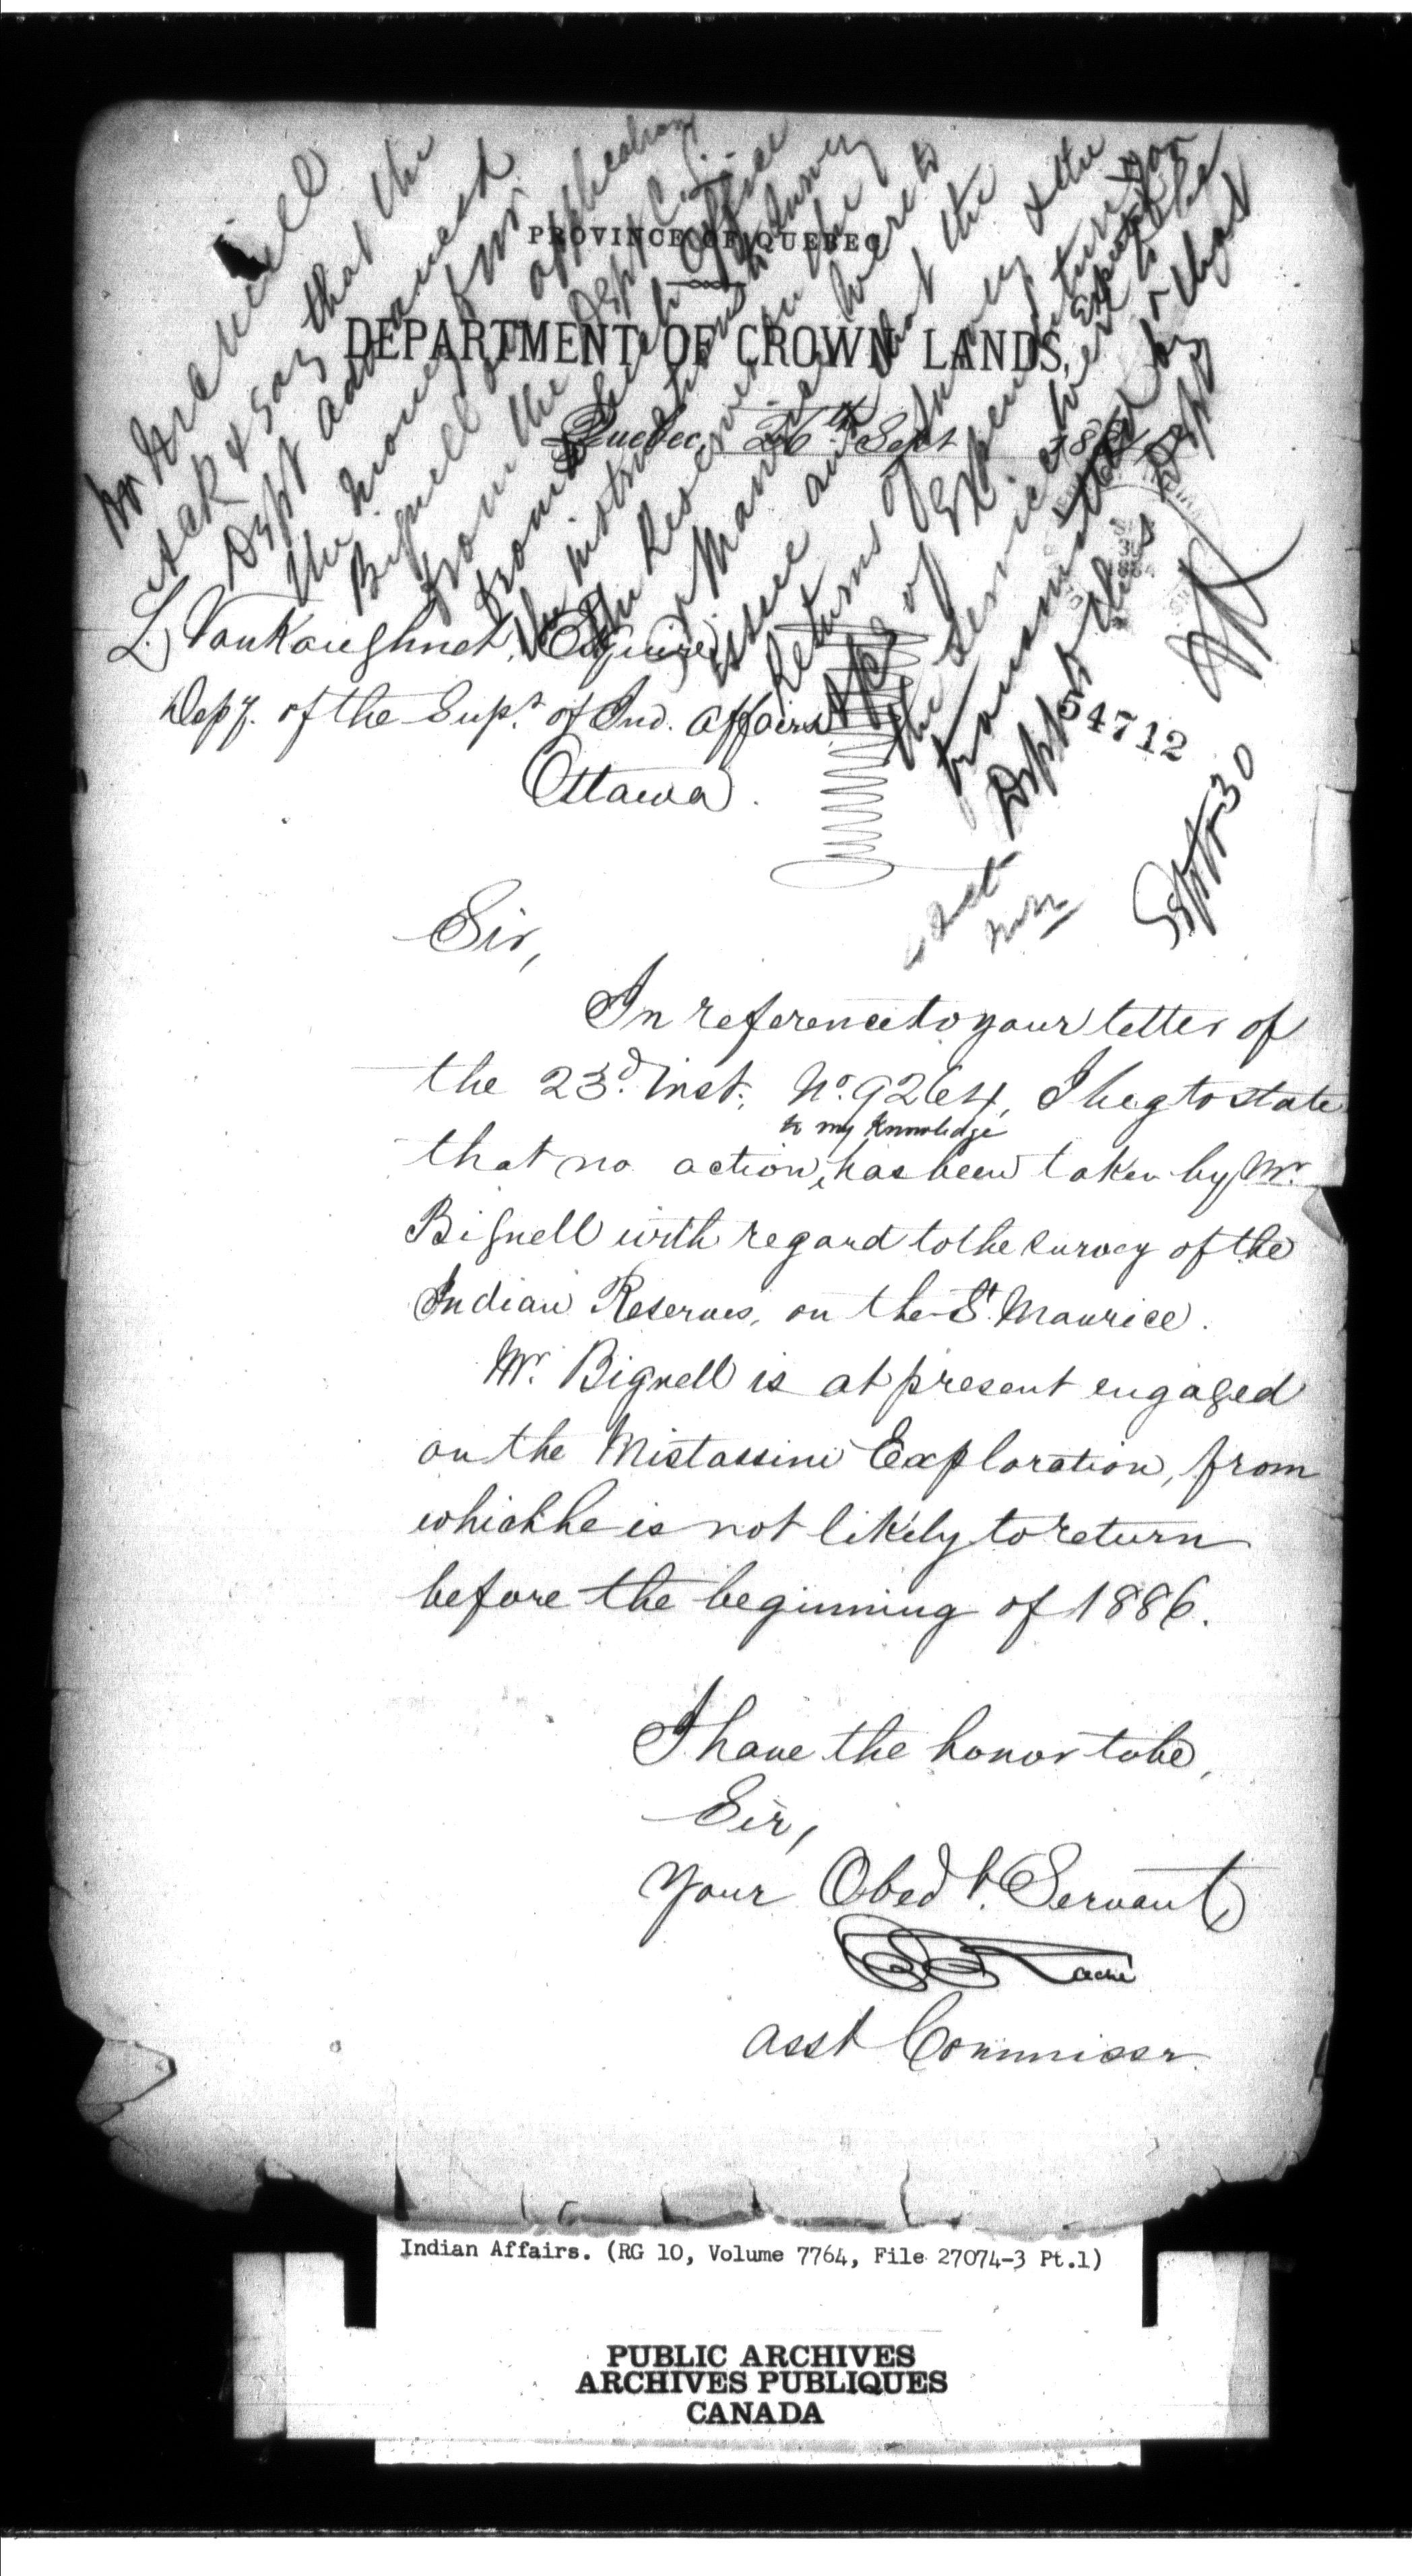 PROVINCE OF QUEBEC
DEPARTMENT OF CROWN LANDS,
Quebec, 26th Sept 1884
L. VanKoughnet, Esquire
Depy. of the Supt. of Ind. Affairs
Ottawa.
54712
Septr 30
Mr
Ack & say that the
Dept advanced
the money for
Bignell
from the Dept C. L.
from
the instructions
the Reserves on the
Maurice were to
issue and that the
Returns of Survey & the
of Expenditure for
the service were to be
transmitted by that
Dept to this Dept
Sir,
In reference to your letter of
the 23d. inst. No. 9264, I beg to state
to my knowledge
that no action, has been taken by Mr.
Bignell with regard to the survey of the
Indian Reserves, on the St. Maurice.
Mr. Bignell is at present engaged
on the Mistassini Exploration, from
which he is not likely to return
before the beginning of 1886.
I have the honor to be,
Sir,
Your Obedt. Servant,
Taché
Asst Commissr
Indian Affairs. (RG 10, Volume 7764, File 27074-3 Pt.1)
PUBLIC ARCHIVES
ARCHIVES PUBLIQUES
CANADA